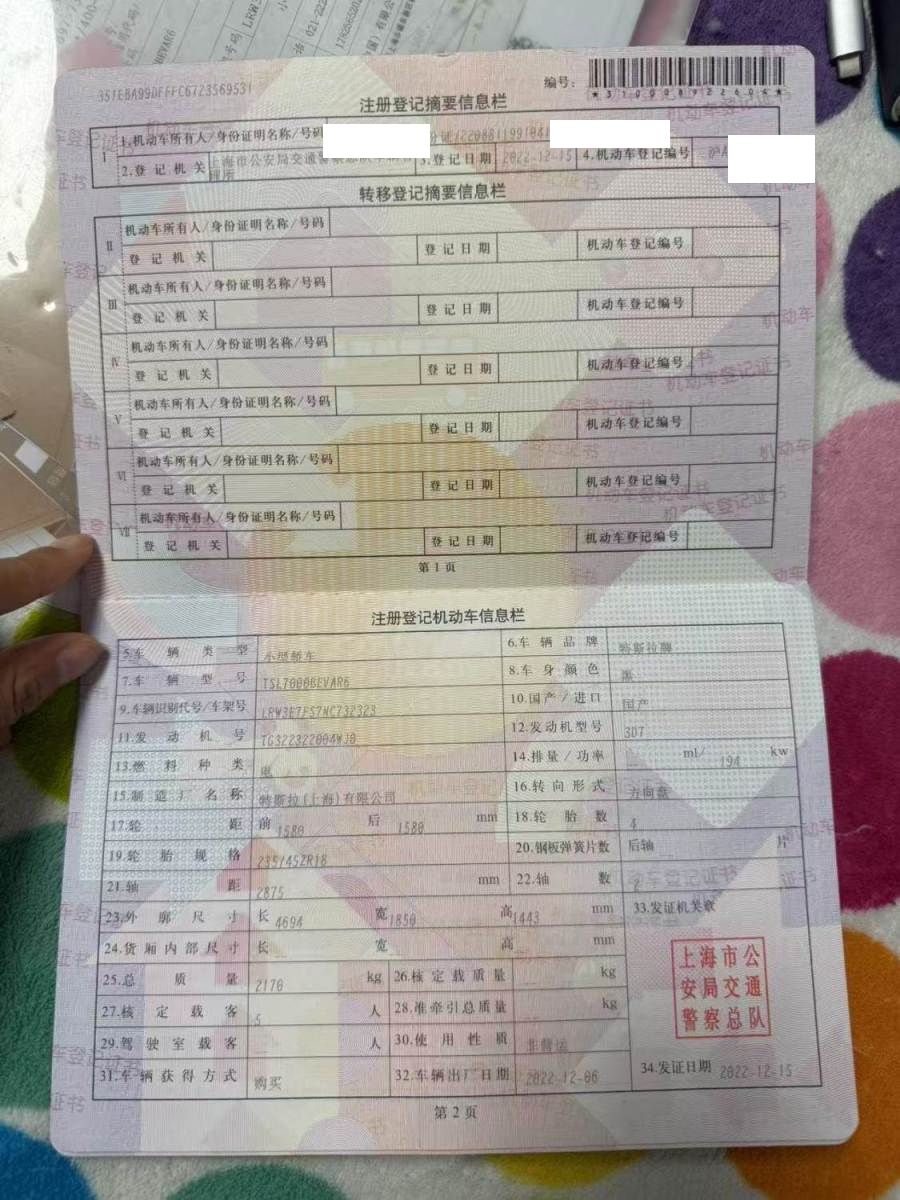 351EBA99DFFFC6723569531
编号：
*310008922604*
注册登记摘要信息栏
I 1.机动车所有人/身份证明名称/号码
2.登记机关 上海市公安局交通警察总队车辆管理所 3.登记日期 2022-12-15 4.机动车登记编号 沪A
转移登记摘要信息栏
II 机动车所有人/身份证明名称/号码
登记机关 登记日期 机动车登记编号
III 机动车所有人/身份证明名称/号码
登记机关 登记日期 机动车登记编号
IV 机动车所有人/身份证明名称/号码
登记机关 登记日期 机动车登记编号
V 机动车所有人/身份证明名称/号码
登记机关 登记日期 机动车登记编号
VI 机动车所有人/身份证明名称/号码
登记机关 登记日期 机动车登记编号
VII 机动车所有人/身份证明名称/号码
登记机关 登记日期 机动车登记编号
第1页
注册登记机动车信息栏
5.车辆类型 小型轿车 6.车辆品牌 特斯拉牌
7.车辆型号 TSL7000BEVAR6 8.车身颜色 黑
9.车辆识别代号/车架号 LRW3E7FS7NC732323 10.国产/进口 国产
11.发动机号 TG322322004WJ0 12.发动机型号 3D7
13.燃料种类 电 14.排量/功率 ml/ 194 kw
15.制造厂名称 特斯拉(上海)有限公司 16.转向形式 方向盘
17.轮距 前 1580 后 1580 mm 18.轮胎数 4
19.轮胎规格 235/45ZR18 20.钢板弹簧片数 后轴 片
21.轴距 2875 mm 22.轴数 2
23.外廓尺寸 长 4694 宽 1850 高 1443 mm 33.发证机关章
24.货厢内部尺寸 长 宽 高 mm
25.总质量 2170 kg 26.核定载质量 kg
27.核定载客 5 人 28.准牵引总质量 kg
29.驾驶室载客 人 30.使用性质 非营运
31.车辆获得方式 购买 32.车辆出厂日期 2022-12-06 34.发证日期 2022-12-15
上海市公
安局交通
警察总队
第2页